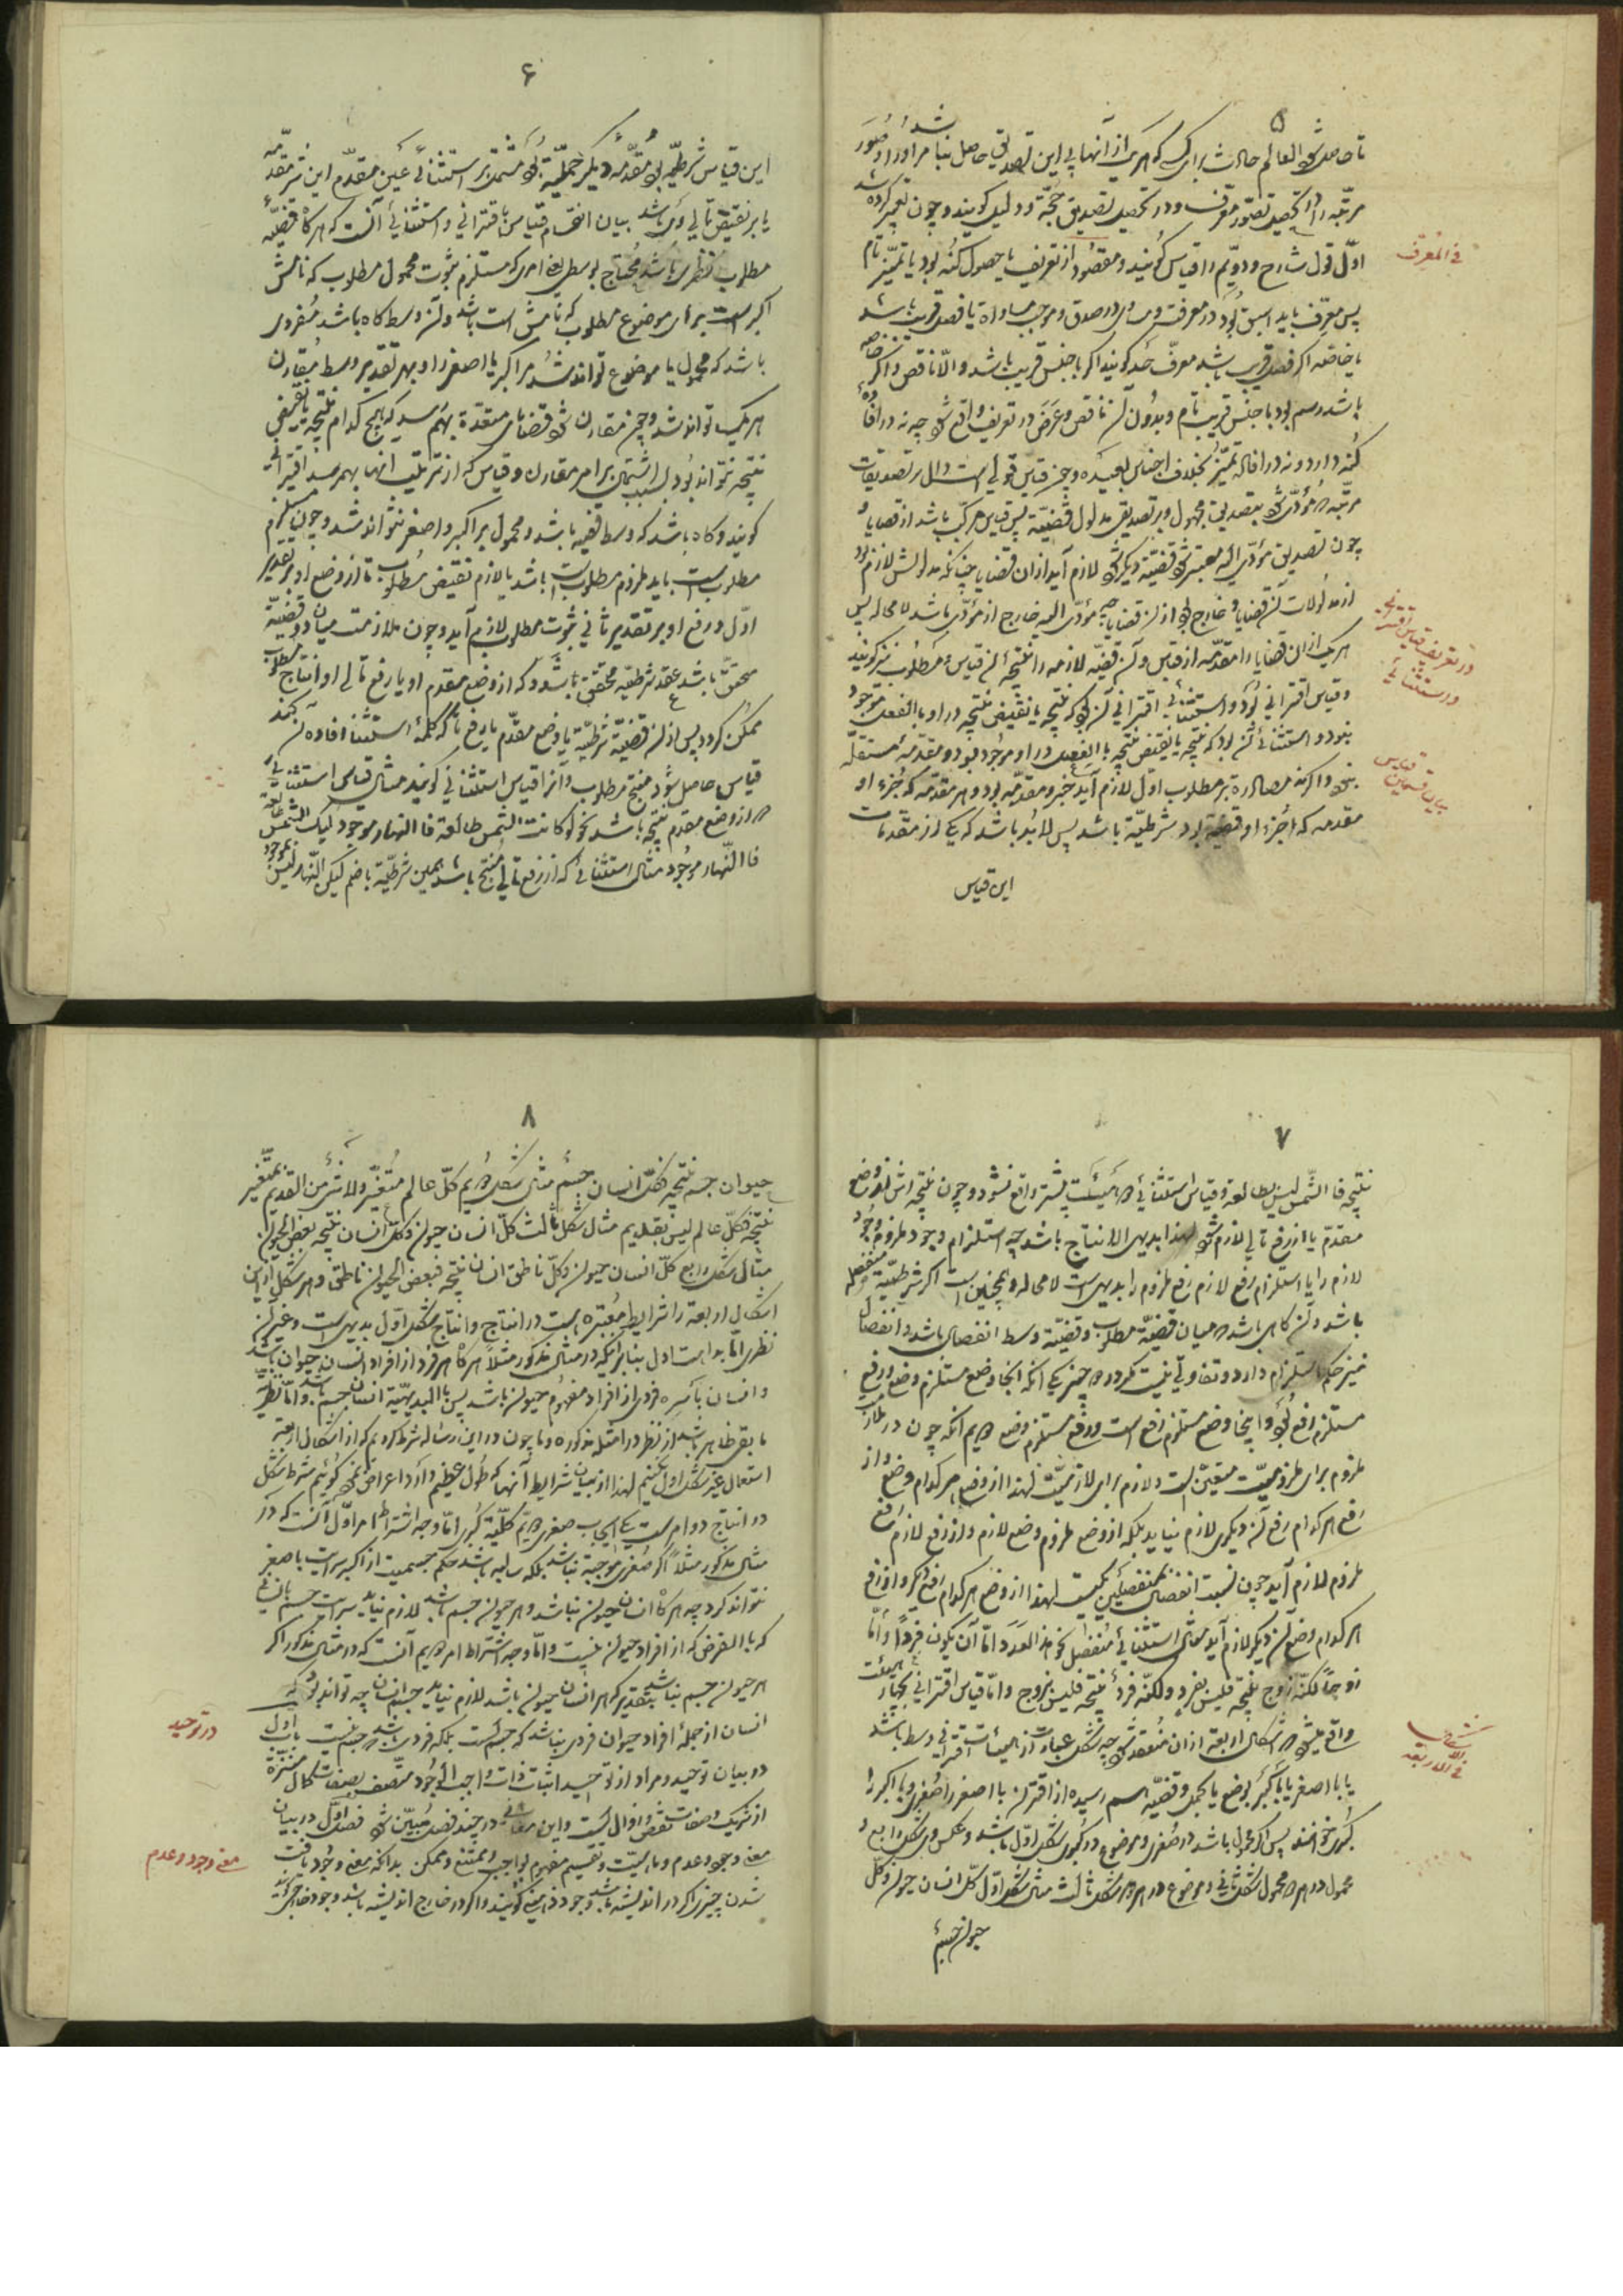 ۵
تا حاصل شود العالم حادث برای که هر یک از آنها پی این تصدیق حاصل نباشد مر او را و صُوَر
مرتبه را در تحصیل تصوّر معرّف و در تحصیل تصدیق حجّة و دلیل کویند و چون تعبیر کرده شد
اوّل قول شارح و دویّم را قیاس کویند و مقصود از تعریف یا حصول کنه بود یا تمیّز تام
پس معرّف باید اسبق بُوَد در معرفت و مساوی در صدق و موجب مساواة یا فصل قریب باشد
یا خاصّه اکر فصل قریب باشد معرّف حد کویند اکر با جنس قریب باشد والّا ناقص و اکر خاصه
باشد رسم بود با جنس قریب تام و بدون آن ناقص و عَرَض در تعریف واقع نشود چه نه در افاده
کُنه دارد و نه در افاده تمیّز بخلاف اجناس بعیده و چون قیاس قولی است دال بر تصدیقات
مرتّبه که مؤدّی شود بتصدیق مجهول و هر تصدیق مدلول قضیّة پس قیاس مرکّب باشد از قضایا و
چون تصدیق مؤدّی الیه معتبر شود قضیّه دیکر شود لازم آید از ان قضایا چنانکه مدلولش لازم بود
از مدلولات آن قضایا و خارج بود از آن قضایا چه مؤدّی الیه خارج از مؤدّی باشد لا محاله پس
هر یک از ان قضایا را مقدّمه از قیاس و آن قضیّه لازمه را نتیجه آن قیاس و مطلوب نیز کویند
و قیاس اقترانی بُوَد و استثنائی اقترانی آن بود که نتیجه یا نقیض نتیجه در او بالفعل موجود
نبود و استثنائی آن بود که نتیجه یا نقیض نتیجه بالفعل در او موجود بود و مقدّمه مستقلّه
نبود و اکر نه مصادره بر مطلوب اوّل لازم آید جزو مقدّمه بود و هر مقدّمه که جُزء او
مقدمه که جُزء او قضیّه بود شرطیّة باشد پس لابُد باشد که یکی از مقدّمات
این قیاس
في المعرف
در تعریف قیاس اقترانی
و استثنائی
بیان قسمین قیاس
۶
این قیاس شرطیّه بود و مقدّمه دیکر حملیّة بود مشتمل بر استثنائی عین مقدّم این شر مقدّمه
یا بر نقیض تالی وی باشد بیان انقسام قیاس باقترانی و استثنائی آنست که هر کاه قضیّه
مطلوب نظری باشد مُحتاج بوسطی یعنی امری که مستلزم ثبوت محمول مطلوب که نامش
اکبر است برای موضوع مطلوب که نامش است باشد و آن وسط کاه باشد مُفردی
باشد که محمول یا موضوع تواند شد مر اکبر یا اصغر را و بهر تقدیر وسط مُقارن
هر یک تواند شد و چون مقارن شود قضایای متعدّدة بهم رسد که هیچ کدام نتیجه یا نقیض
نتیجه نتواند بود بسبب اشتمال بر امر مقارن و قیاس که از ترتیب انها بهم رسد اقترانی
کویند و کاه باشد که وسط قضیه باشد و محمول بر اکبر و اصغر نتواند شد و چون مستلزم
مطلوب است باید ملزوم مطلوب باشد یا لازم نقیض مطلوب تا از وضع او بر تقدیر
اوّل و رفع او بر تقدیر ثانی ثبوت مطلوب لازم آید و چون ملازمت میان دو قضیّة
متحقّق باشد عقد شرطیّه محقّق باشد و که از وضع مقدّم او یا رفع تالی او انتاج مطلوب
ممکن کردد پس از آن قضیّه شرطیّه یا وضع مقدّم یا رفع تالی که کلمهٔ استثنا افاده آن کند
قیاس حاصل شود منتج مطلوب و آنرا قیاس استثنائی کویند مثال قیاس استثنایی
که از وضع مقدم نتیجه باشد نحو لو کانت الشمس طالعة فالنهار موجود لیکن الشمس طالعة
فالنّهار موجود مثال استثنائی که از رفع تالی منتج باشد همین شرطیّة باضم لیکن النّهار لیس بموجود
۷
نتیجه فالشّمس لیس بطالعة و قیاس استثنائی که هَیئَت پیشتر واقع نشود و چون نتیجه اش از وضع
مقدّم یا از رفع تالی لازم شود لهذا بدیهی الانتاج باشد چه استلزام وجود ملزوم وجُود
لازم را یا استلزام رفع لازم رفع ملزوم را بدیهی است لا محاله و همچنین است اکر شرطیّة منفصله
باشد و آن کاهی باشد که میان قضیّه مطلوب و قضیّة وسط انفصالی باشد و انفصال
نیز حکم استلزام دارد و تفاوتی نیست مکر در چیزیکه انکه انجا وضع مستلزم وضع و رفع
مستلزم رفع بُوَد و اینجا وضع مستلزم رفع است و رفع مستلزم وضع دویم انکه چون در
ملزوم برای ملزومیّت متعیّن است و لازم برای لازمیّت لهذا از وضع هر کدام وضع و از
رفع هر کدام رفع آن دیکری لازم نیاید بلکه از وضع ملزوم وضع لازم و از رفع لازم رفع
ملزوم لازم آید چون نسبت انفصال بمنفصلین یکیست لهذا از وضع هر کدام رفع دیکر و از رفع
هر کدام وضع آن دیکر لازم آید مثال استثنائی منفصل نحو هذا العدد امّا آن یکون فرداً و امّا
زوجاً لکنّه زوج نتیجه فلیس بفرد و لکنّه فردٌ نتیجه فلیس بزوج و امّا قیاس اقترانی بچهار هیئت
واقع میشود که اشکال اربعة ازان مُنعقد شود چه شکل عبارت از هیئات اقترانی وسط باشد
یا با اصغر یا با اکبر بوضع یا بحمل و قضیّه بهم رسیده از اقتران با اصغر را صُغری و با اکبر را
کُبری خوانند پس اکر محمول باشد در صُغری و موضوع در کبری شکل اوّل باشد و عکس وی شکل رابع و
محمول در هر دو محمول شکل ثانی و موضوع در هر دو شکل ثالث مثال شکل اوّل کل انسان حیوان و کلّ
حیوان جسمٌ
في الاشکال
الاربعة
۸
حیوان جسم نتیجه فکلّ انسان جسمٌ مثال شکل دویم کلّ عالم مُتغیّر و لا شئ من القدیم بمتغیّر
نتیجه فکلّ عالم لیس بقدیم مثال شکل ثالث کلّ انسان حیوان و کلّ انسان نتیجه بعض الحیوان
مثال شکل رابع کلّ انسان حیوان و کلّ ناطق انسان نتیجه فبعض الحیوان ناطق و هر شکل از این
اشکال اربعة را شرایط مُعتبره است در انتاج و انتاج شکل اوّل بدیهی است و غیر آن
نظری امّا بداهت اول بنابر آنکه در مثال مذکور مثلاً هر کاه هر فرد از افراد انسان حیوان باشد
و انسان باسره فردی از افراد مفهوم حیوان باشد پس بالبدیهیّه انسان جسم باشد و امّا نظریّه
ما بقی ظاهر باشد از نظر در امثله مذکوره و ما چون در این رساله شرط کردیم که از اشکال اربعه
استعمال غیر شکل اول نکنیم لهذا از بیان شرایط آنها که طول عظیم دارد اعراض نموده کوئیم شرط شکل
در انتاج دو امر است یکی ایجاب صغری دویّم کلّیّة کُبری امّا وجه اشتراط امر اوّل آنست که در
مثال مذکور مثلاً اکر صُغری موجبة نباشد بلکه سالبه باشد حکم جسمیت از اکبر سرایت باصغر
نتواند کرد چه هر کاه انسان حیوان نباشد و هر حیوان جسم باشد لازم نیاید سرایت جسم بانسانی
که بالفرض که از افراد حیوان نیست و امّا وجه اشتراط امر دویم آنست که در مثال مذکور اکر
هر حیوان جسم نباشد بتقدیری که هر انسان حیوان باشد لازم نیاید جسم انسان چه تواند بود که
انسان از جمله افراد حیوان فردی نباشد که جسم است بلکه فردی باشد که جسم نیست باب اول
در بیان توحید و مراد از توحید اثبات ذات واجب الوجُود متّصف بصفات کمال منزّه
از شریک و صفات نقص و زوال است و این معانی در چند فصل مُبیّن شود فصل اوّل در بیان
معنی وجود و عدم و ماهیّت و تقسیم مفهوم بواجب و ممتنع و ممکن بدانکه معنی وجُود یافت
شدن چیزی اکر در اندیشه باشد وجود ذهنی کویند و اکر در خارج اندیشه باشد وجود خارجی کویند
در توحید
معنی وجود و عدم